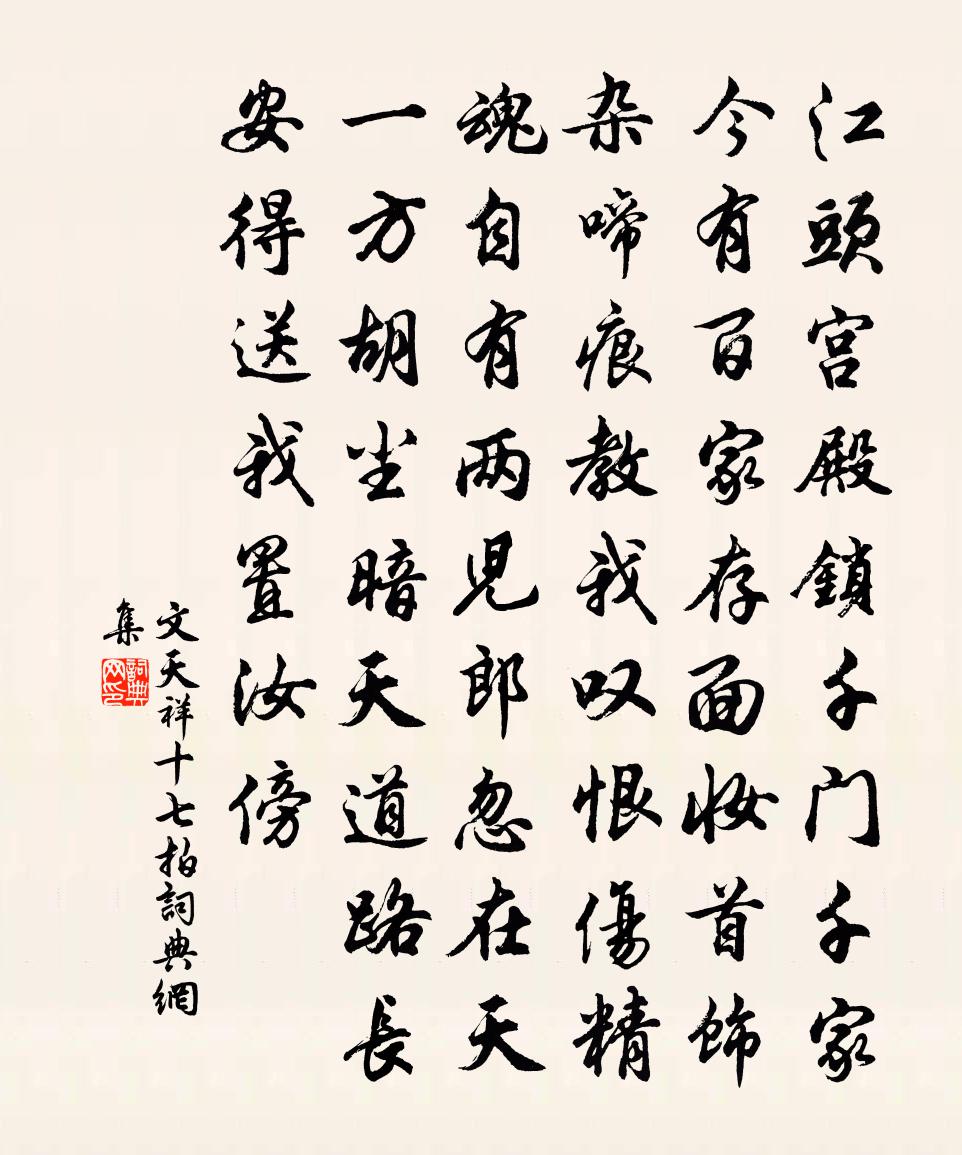 江頭宫殿鎖千门千家
今有百家存面妆首飾
杂啼痕教我叹恨傷精
魂自有两児郎忽在天
一方胡尘暗天道路長
安得送我置汝傍
文天祥十七拍詞典網
集
詞典网印